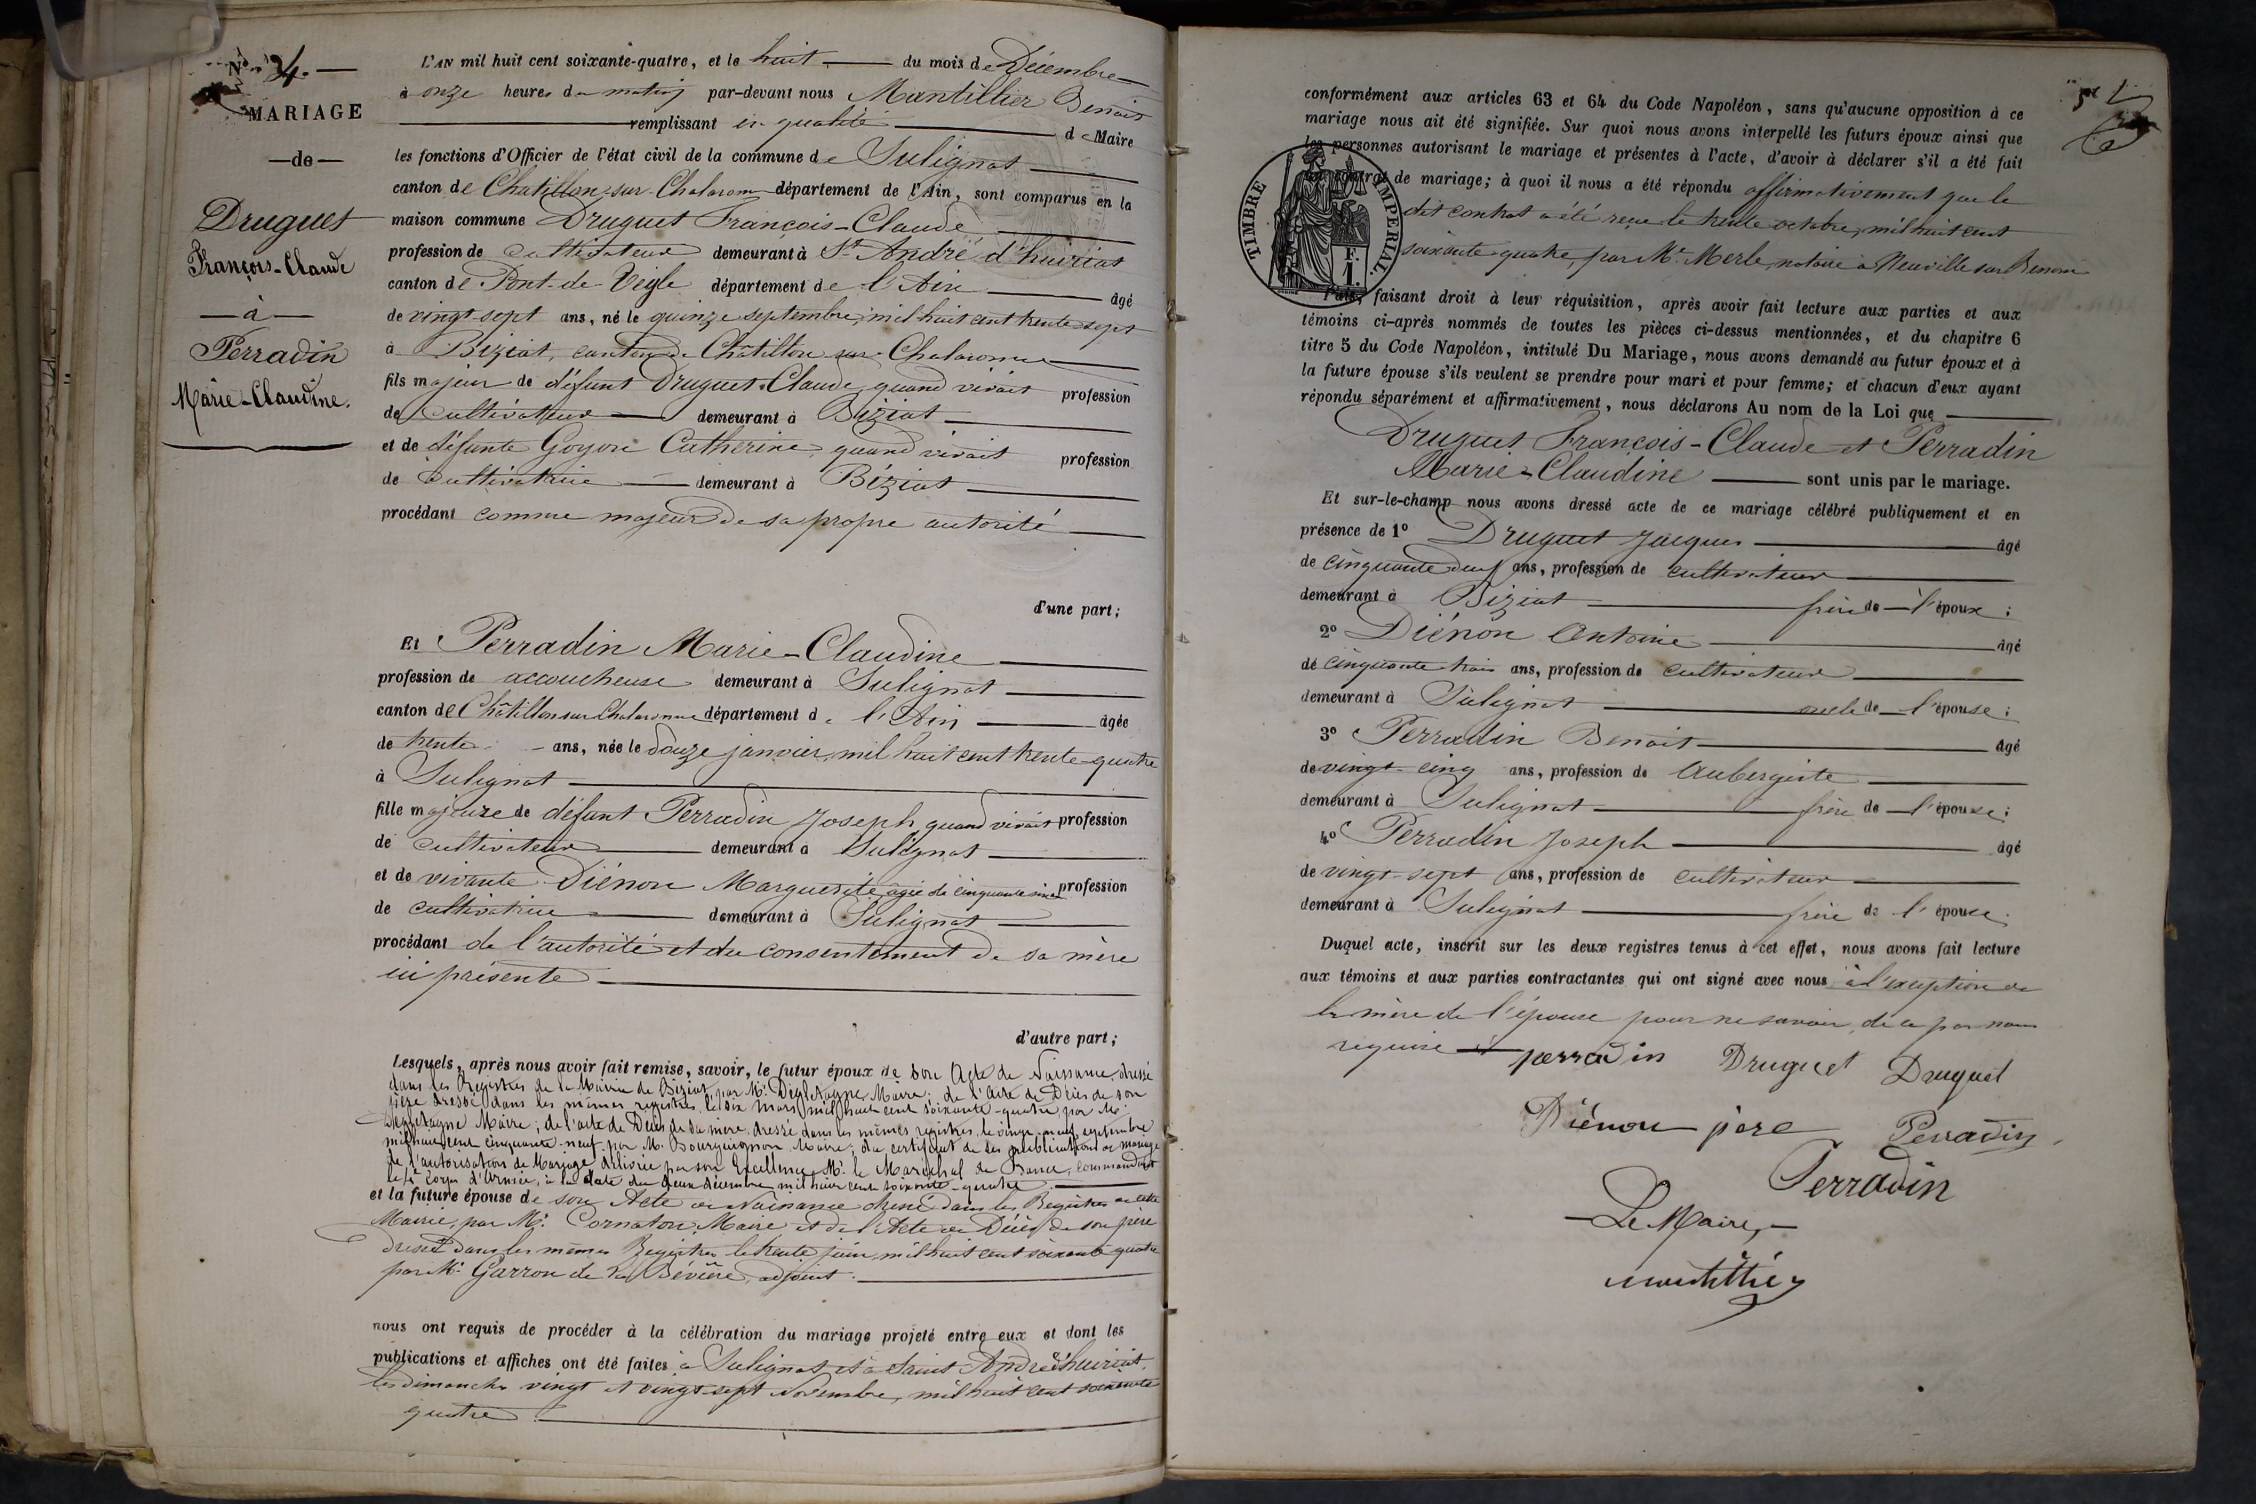 N° 24.
MARIAGE
—de—
Druguet
François-Claude
—à—
Perradin
Marie-Claudine.
L'AN mil huit cent soixante-quatre, et le huit du mois de Décembre
à onze heures du matin par-devant nous Mantillier Benoit
remplissant en qualité de Maire
les fonctions d'Officier de l'état civil de la commune de Sulignat
canton de Chatillon-sur-Chalaronne département de l'Ain, sont comparus en la
maison commune Druguet François-Claude
profession de cultivateur demeurant à St André d'huiriat
canton de Pont-de-Veyle département de l'Ain âgé
de vingt-sept ans, né le quinze septembre, mil huit cent trente-sept
à Biziat, canton de Châtillon sur Chalaronne
fils majeur de défunt Druguet Claude, quand vivait profession
de cultivateur demeurant à Biziat
et de défunte Goyon Catherine, quand vivait profession
de cultivatrice demeurant à Biziat
procédant comme majeur de sa propre autorité
d'une part;
Et Perradin Marie-Claudine
profession de accoucheuse demeurant à Sulignat
canton de Châtillon sur Chalaronne département de l'Ain âgée
de trente ans, née le douze janvier, mil huit cent trente-quatre
à Sulignat
fille majeure de défunt Perradin Joseph, quand vivait profession
de cultivateur demeurant à Sulignat
et de vivante Diénon Marguerite, âgée de cinquante profession
de cultivatrice demeurant à Sulignat
procédant de l'autorité et du consentement de sa mère
ici présente
d'autre part;
Lesquels, après nous avoir fait remise, savoir, le futur époux de son Acte de Naissance, dressé
dans les Registres de la Mairie de Biziat, par Mr. Maire; de l'Acte de Décès de son
père dressé dans les mêmes registres, le six Mars, mil huit cent soixante-quatre, par Mr.
Maire; de l'acte de Décès de sa mère, dressé dans les mêmes registres, le vingt-neuf septembre
mil huit cent cinquante-neuf, par M. Maire; du certificat de les publications de mariage
de l'autorisation de Mariage délivrée par son Excellence Mr. le Maréchal commandant
le corps d'Armée, à la date du deux décembre mil huit cent soixante-quatre
et la future épouse de son Acte de Naissance dressé dans les Registres de cette
Mairie, par Mr. Cornaton, Maire et de l'Acte de Décès de son père
dressé dans les mêmes Registres le trente juin, mil huit cent soixante quatre
par Mr. Garron de la Bévière, adjoint.
nous ont requis de procéder à la célébration du mariage projeté entre eux et dont les
publications et affiches ont été faites à Sulignat et à Saint André d'huiriat,
les dimanches vingt et vingt-sept Novembre, mil huit cent soixante
quatre
conformément aux articles 63 et 64 du Code Napoléon, sans qu'aucune opposition à ce
mariage nous ait été signifiée. Sur quoi nous avons interpellé les futurs époux ainsi que
les personnes autorisant le mariage et présentes à l'acte, d'avoir à déclarer s'il a été fait
contrat de mariage; à quoi il nous a été répondu affirmativement que le
dit contrat a été reçu le trente octobre, mil huit cent
soixante-quatre, par Mr. Merle, notaire à Neuville sur Renom
TIMBRE IMPÉRIAL.
F.
1.
Puis, faisant droit à leur réquisition, après avoir fait lecture aux parties et aux
témoins ci-après nommés de toutes les pièces ci-dessus mentionnées, et du chapitre 6
titre 5 du Code Napoléon, intitulé Du Mariage, nous avons demandé au futur époux et à
la future épouse s'ils veulent se prendre pour mari et pour femme; et chacun d'eux ayant
répondu séparément et affirmativement, nous déclarons Au nom de la Loi que
Druguet François-Claude et Perradin
Marie-Claudine sont unis par le mariage.
Et sur-le-champ nous avons dressé acte de ce mariage célébré publiquement et en
présence de 1° Druguet Jacques âgé
de cinquante deux ans, profession de cultivateur
demeurant à Biziat frère de l'époux;
2° Diénon Antoine âgé
de cinquante trois ans, profession de cultivateur
demeurant à Sulignat oncle de l'épouse;
3° Perradin Benoit âgé
de vingt-cinq ans, profession de Aubergiste
demeurant à Sulignat frère de l'épouse;
4° Perradin Joseph âgé
de vingt-sept ans, profession de cultivateur
demeurant à Sulignat frère de l'épouse.
Duquel acte, inscrit sur les deux registres tenus à cet effet, nous avons fait lecture
aux témoins et aux parties contractantes qui ont signé avec nous à l'exception de
la mère de l'épouse pour ne savoir, de ce par nous
requise
perradin Druguet Druguet
Diénon père Perradin
Perradin
Le Maire,
Mantillier